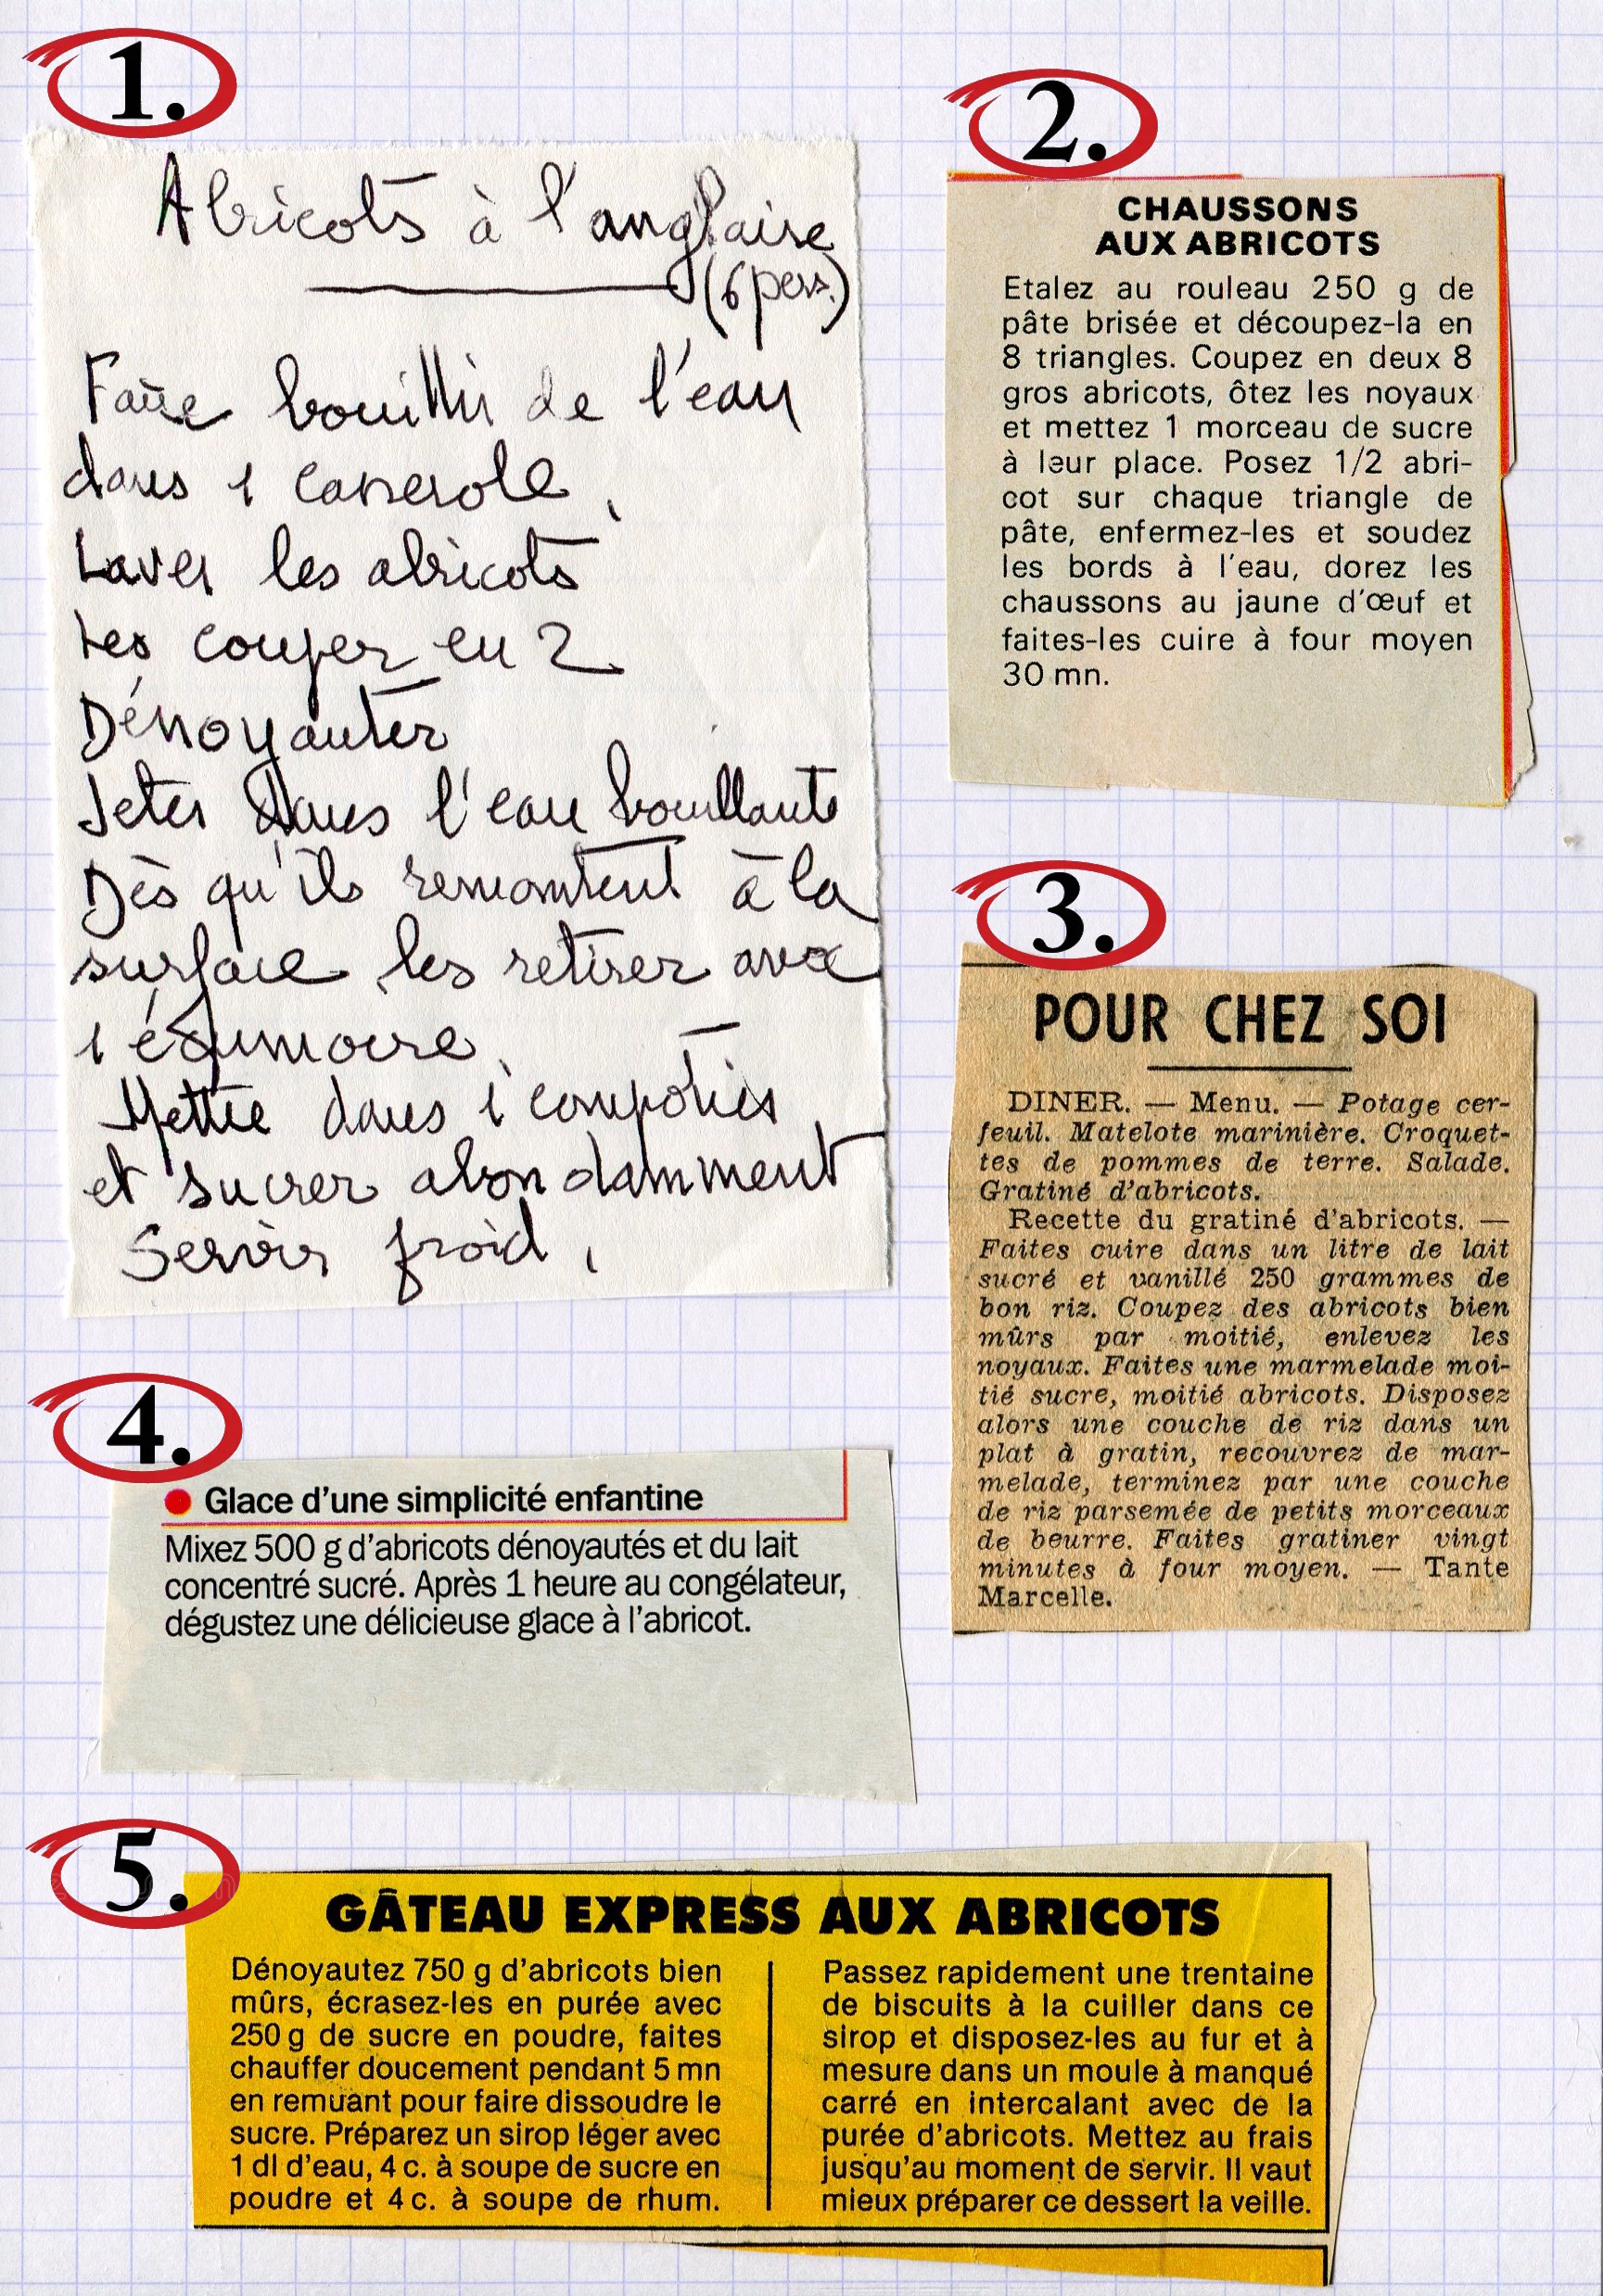 1.
Abricots à l'anglaise
(6 pers.)
Faire bouillir de l'eau
dans 1 casserole.
Laver les abricots
Les couper en 2
Dénoyauter
Jeter dans l'eau bouillante
Dès qu'ils remontent à la
surface les retirer avec
1 écumoire.
Mettre dans 1 compotier
et sucrer abondamment
Servir froid.
2.
CHAUSSONS
AUX ABRICOTS
Etalez au rouleau 250 g de
pâte brisée et découpez-la en
8 triangles. Coupez en deux 8
gros abricots, ôtez les noyaux
et mettez 1 morceau de sucre
à leur place. Posez 1/2 abri-
cot sur chaque triangle de
pâte, enfermez-les et soudez
les bords à l'eau, dorez les
chaussons au jaune d'œuf et
faites-les cuire à four moyen
30 mn.
3.
POUR CHEZ SOI
DINER. — Menu. — Potage cer-
feuil. Matelote marinière. Croquet-
tes de pommes de terre. Salade.
Gratiné d'abricots.
Recette du gratiné d'abricots. —
Faites cuire dans un litre de lait
sucré et vanillé 250 grammes de
bon riz. Coupez des abricots bien
mûrs par moitié, enlevez les
noyaux. Faites une marmelade moi-
tié sucre, moitié abricots. Disposez
alors une couche de riz dans un
plat à gratin, recouvrez de mar-
melade, terminez par une couche
de riz parsemée de petits morceaux
de beurre. Faites gratiner vingt
minutes à four moyen. — Tante
Marcelle.
4.
● Glace d'une simplicité enfantine
Mixez 500 g d'abricots dénoyautés et du lait
concentré sucré. Après 1 heure au congélateur,
dégustez une délicieuse glace à l'abricot.
5.
GÂTEAU EXPRESS AUX ABRICOTS
Dénoyautez 750 g d'abricots bien
mûrs, écrasez-les en purée avec
250 g de sucre en poudre, faites
chauffer doucement pendant 5 mn
en remuant pour faire dissoudre le
sucre. Préparez un sirop léger avec
1 dl d'eau, 4 c. à soupe de sucre en
poudre et 4 c. à soupe de rhum.
Passez rapidement une trentaine
de biscuits à la cuiller dans ce
sirop et disposez-les au fur et à
mesure dans un moule à manqué
carré en intercalant avec de la
purée d'abricots. Mettez au frais
jusqu'au moment de servir. Il vaut
mieux préparer ce dessert la veille.